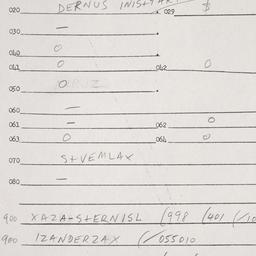 020 DERNUS 029
030 —
040 O
041 O 042 O
050 O
060 —
061 — 062 O
063 O 064 O
070 STVEMLAX
080 —
900 XAZA-STERNISL (998 (401 (/10
900 IZANDERZAX (/055010